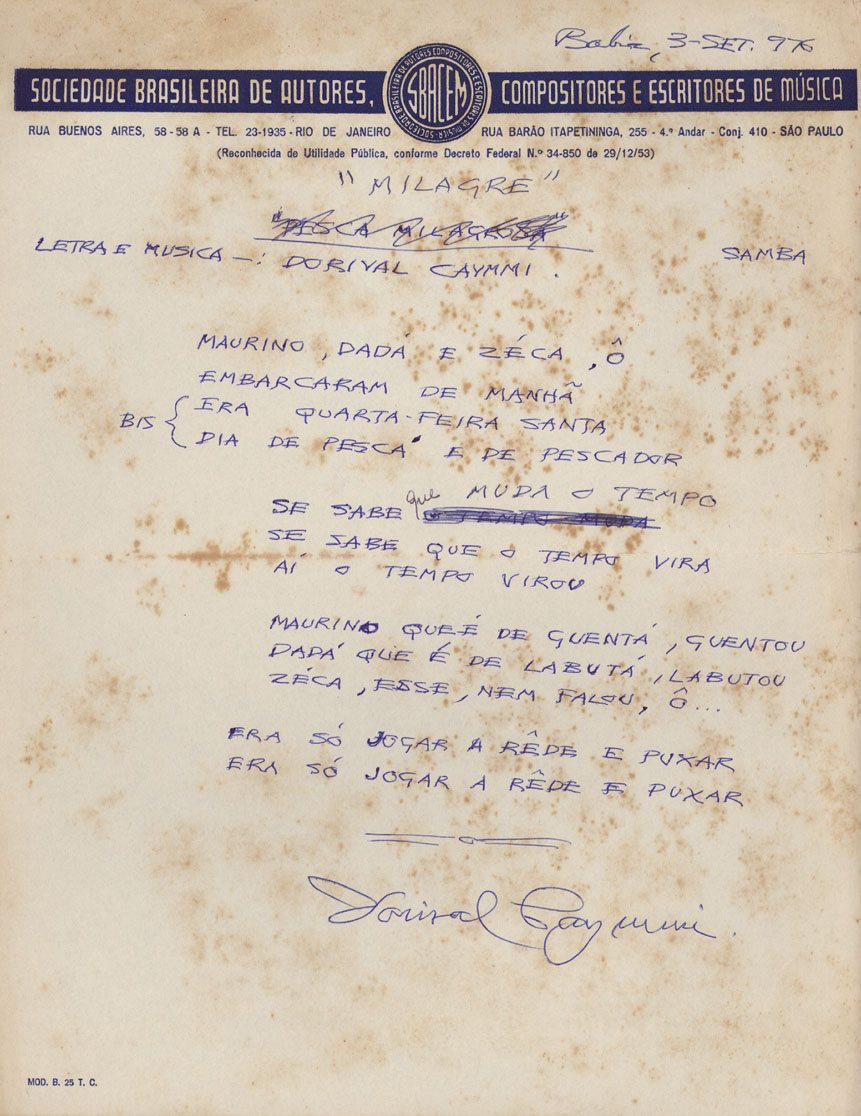 Bahia, 3-SET. 976
SOCIEDADE BRASILEIRA DE AUTORES, COMPOSITORES E ESCRITORES DE MÚSICA
SBACEM
SOCIEDADE BRASILEIRA DE AUTORES COMPOSITORES E ESCRITORES DE MUSICA
RUA BUENOS AIRES, 58-58 A - TEL. 23-1935 - RIO DE JANEIRO RUA BARÃO ITAPETININGA, 255 - 4.º Andar - Conj. 410 - SÃO PAULO
(Reconhecida de Utilidade Pública, conforme Decreto Federal N.º 34-850 de 29/12/53)
"MILAGRE"
"PESCA MILAGROSA"
LETRA E MUSICA —: DORIVAL CAYMMI. SAMBA
MAURINO, DADÁ E ZÉCA, Ô
EMBARCARAM DE MANHÃ
BIS { ERA QUARTA-FEIRA SANTA
DIA DE PESCA E DE PESCADOR
SE SABE que MUDA O TEMPO
O TEMPO MUDA
SE SABE QUE O TEMPO VIRA
AÍ O TEMPO VIROU
MAURINO QUE É DE GUENTÁ, GUENTOU
DADÁ QUE É DE LABUTÁ, LABUTOU
ZÉCA, ESSE, NEM FALOU, Ô...
ERA SÓ JOGAR A RÊDE E PUXAR
ERA SÓ JOGAR A RÊDE E PUXAR
Dorival Caymmi.
MOD. B. 25 T. C.